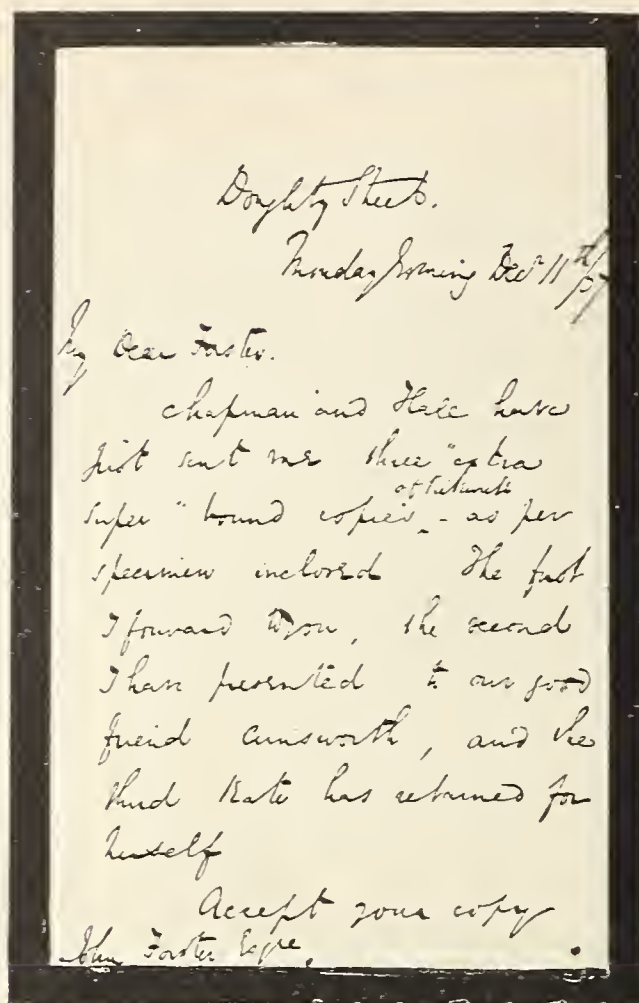 Doughty Street.
Monday Morning Decr 11th /37
My Dear Forster.
Chapman and Hall have
just sent me three "extra
of Pickwick
super" bound copies - as per
specimen inclosed The first
I forward to you, the second
I have presented to our good
friend Ainsworth, and the
third Kate has retained for
herself
Accept your copy
John Forster Esqre.